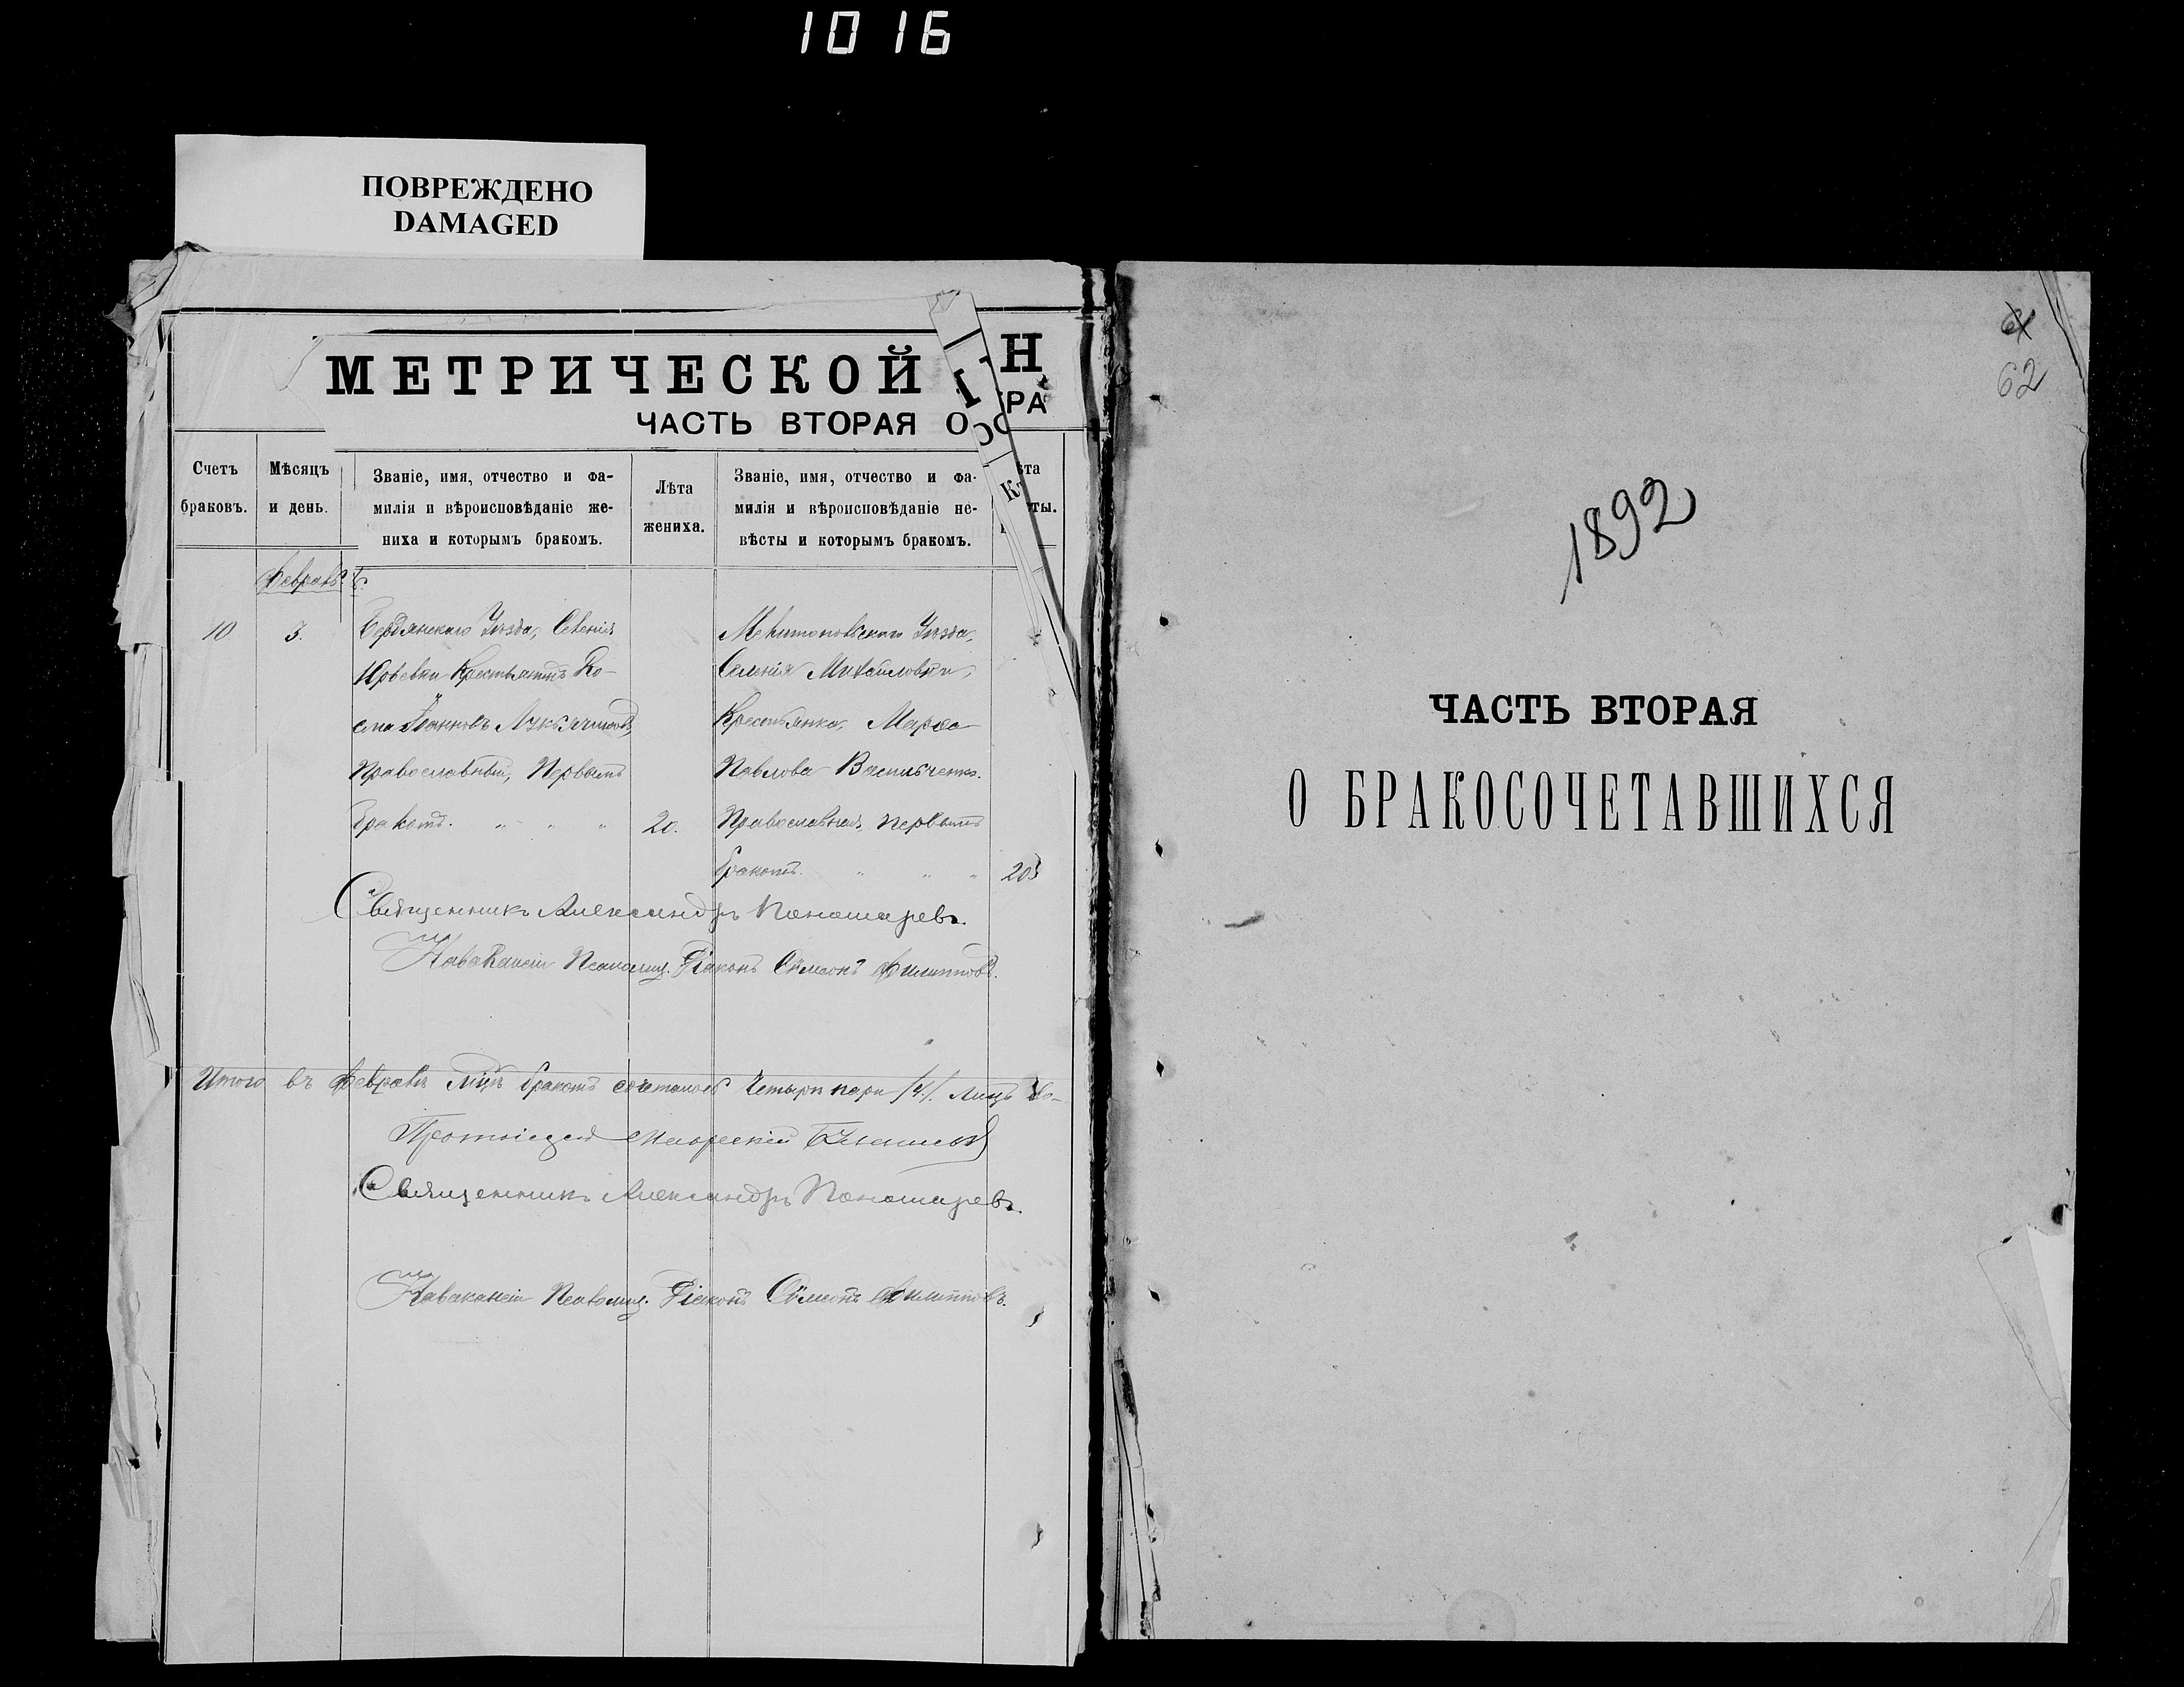 1016
ПОВРЕЖДЕНО
DAMAGED
МЕТРИЧЕСКОЙ Н
ЧАСТЬ ВТОРАЯ О РА
Счетъ браковъ.
Мѣсяцъ и день.
Званіе, имя, отчество и фа-
милія и вѣроисповѣданіе же-
ниха и которымъ бракомъ.
Лѣта
жениха.
Званіе, имя, отчество и фа-
милія и вѣроисповѣданіе не-
вѣсты и которымъ бракомъ.
ѣта
ты.
Февраль
10
3.
Бердянскаго Уѣзда, Селенія
Юрьевки Крестьянинъ Ко-
сма Іоанновъ
Православный, Первымъ
бракомъ.
20.
Мелитопольскаго Уѣзда,
Селенія Михайловки,
Крестьянка, Марѳа
Павлова Васильченко.
Православная, первымъ
бракомъ.
20
Священникъ Александръ Пономаревъ.
Псаломщ. Діаконъ Сѵмеонъ Филипповъ.
Итого въ Февралѣ мцѣ бракомъ сочеталось Четыри пари /4/. лицъ
Протоіерей
Священникъ Александръ Пономаревъ.
Псаломщ. Діаконъ Сѵмеонъ Филипповъ.
62
1892
ЧАСТЬ ВТОРАЯ
О БРАКОСОЧЕТАВШИХСЯ